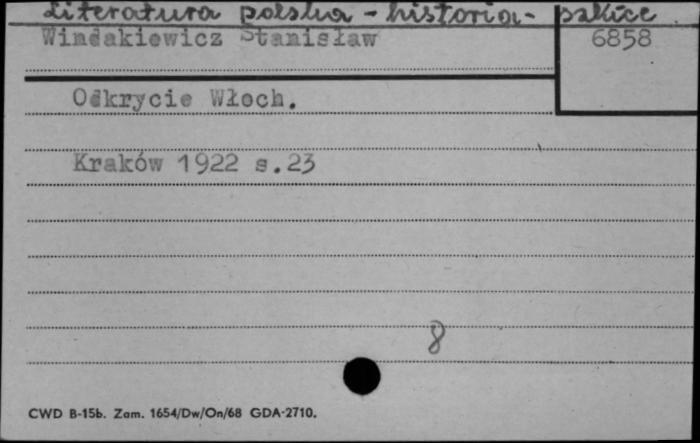 Literatura polska - historia - szkice
Windakiewicz Stanisław
6858
Odkrycie Włoch.
Kraków 1922 s.23
8
CWD B-15b. Zam. 1654/Dw/On/68 GDA-2710.